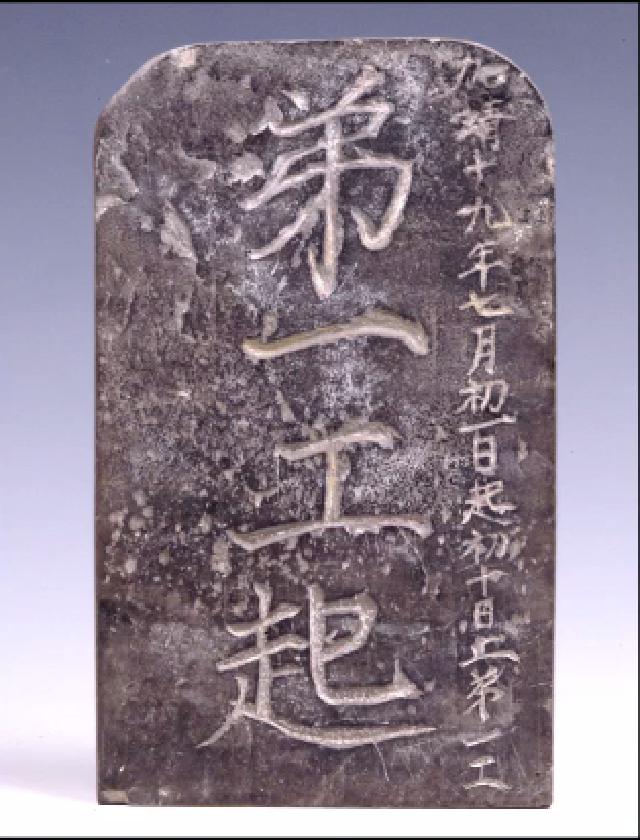 加靖十九年七月初一日起初十日止第一工
第一工起